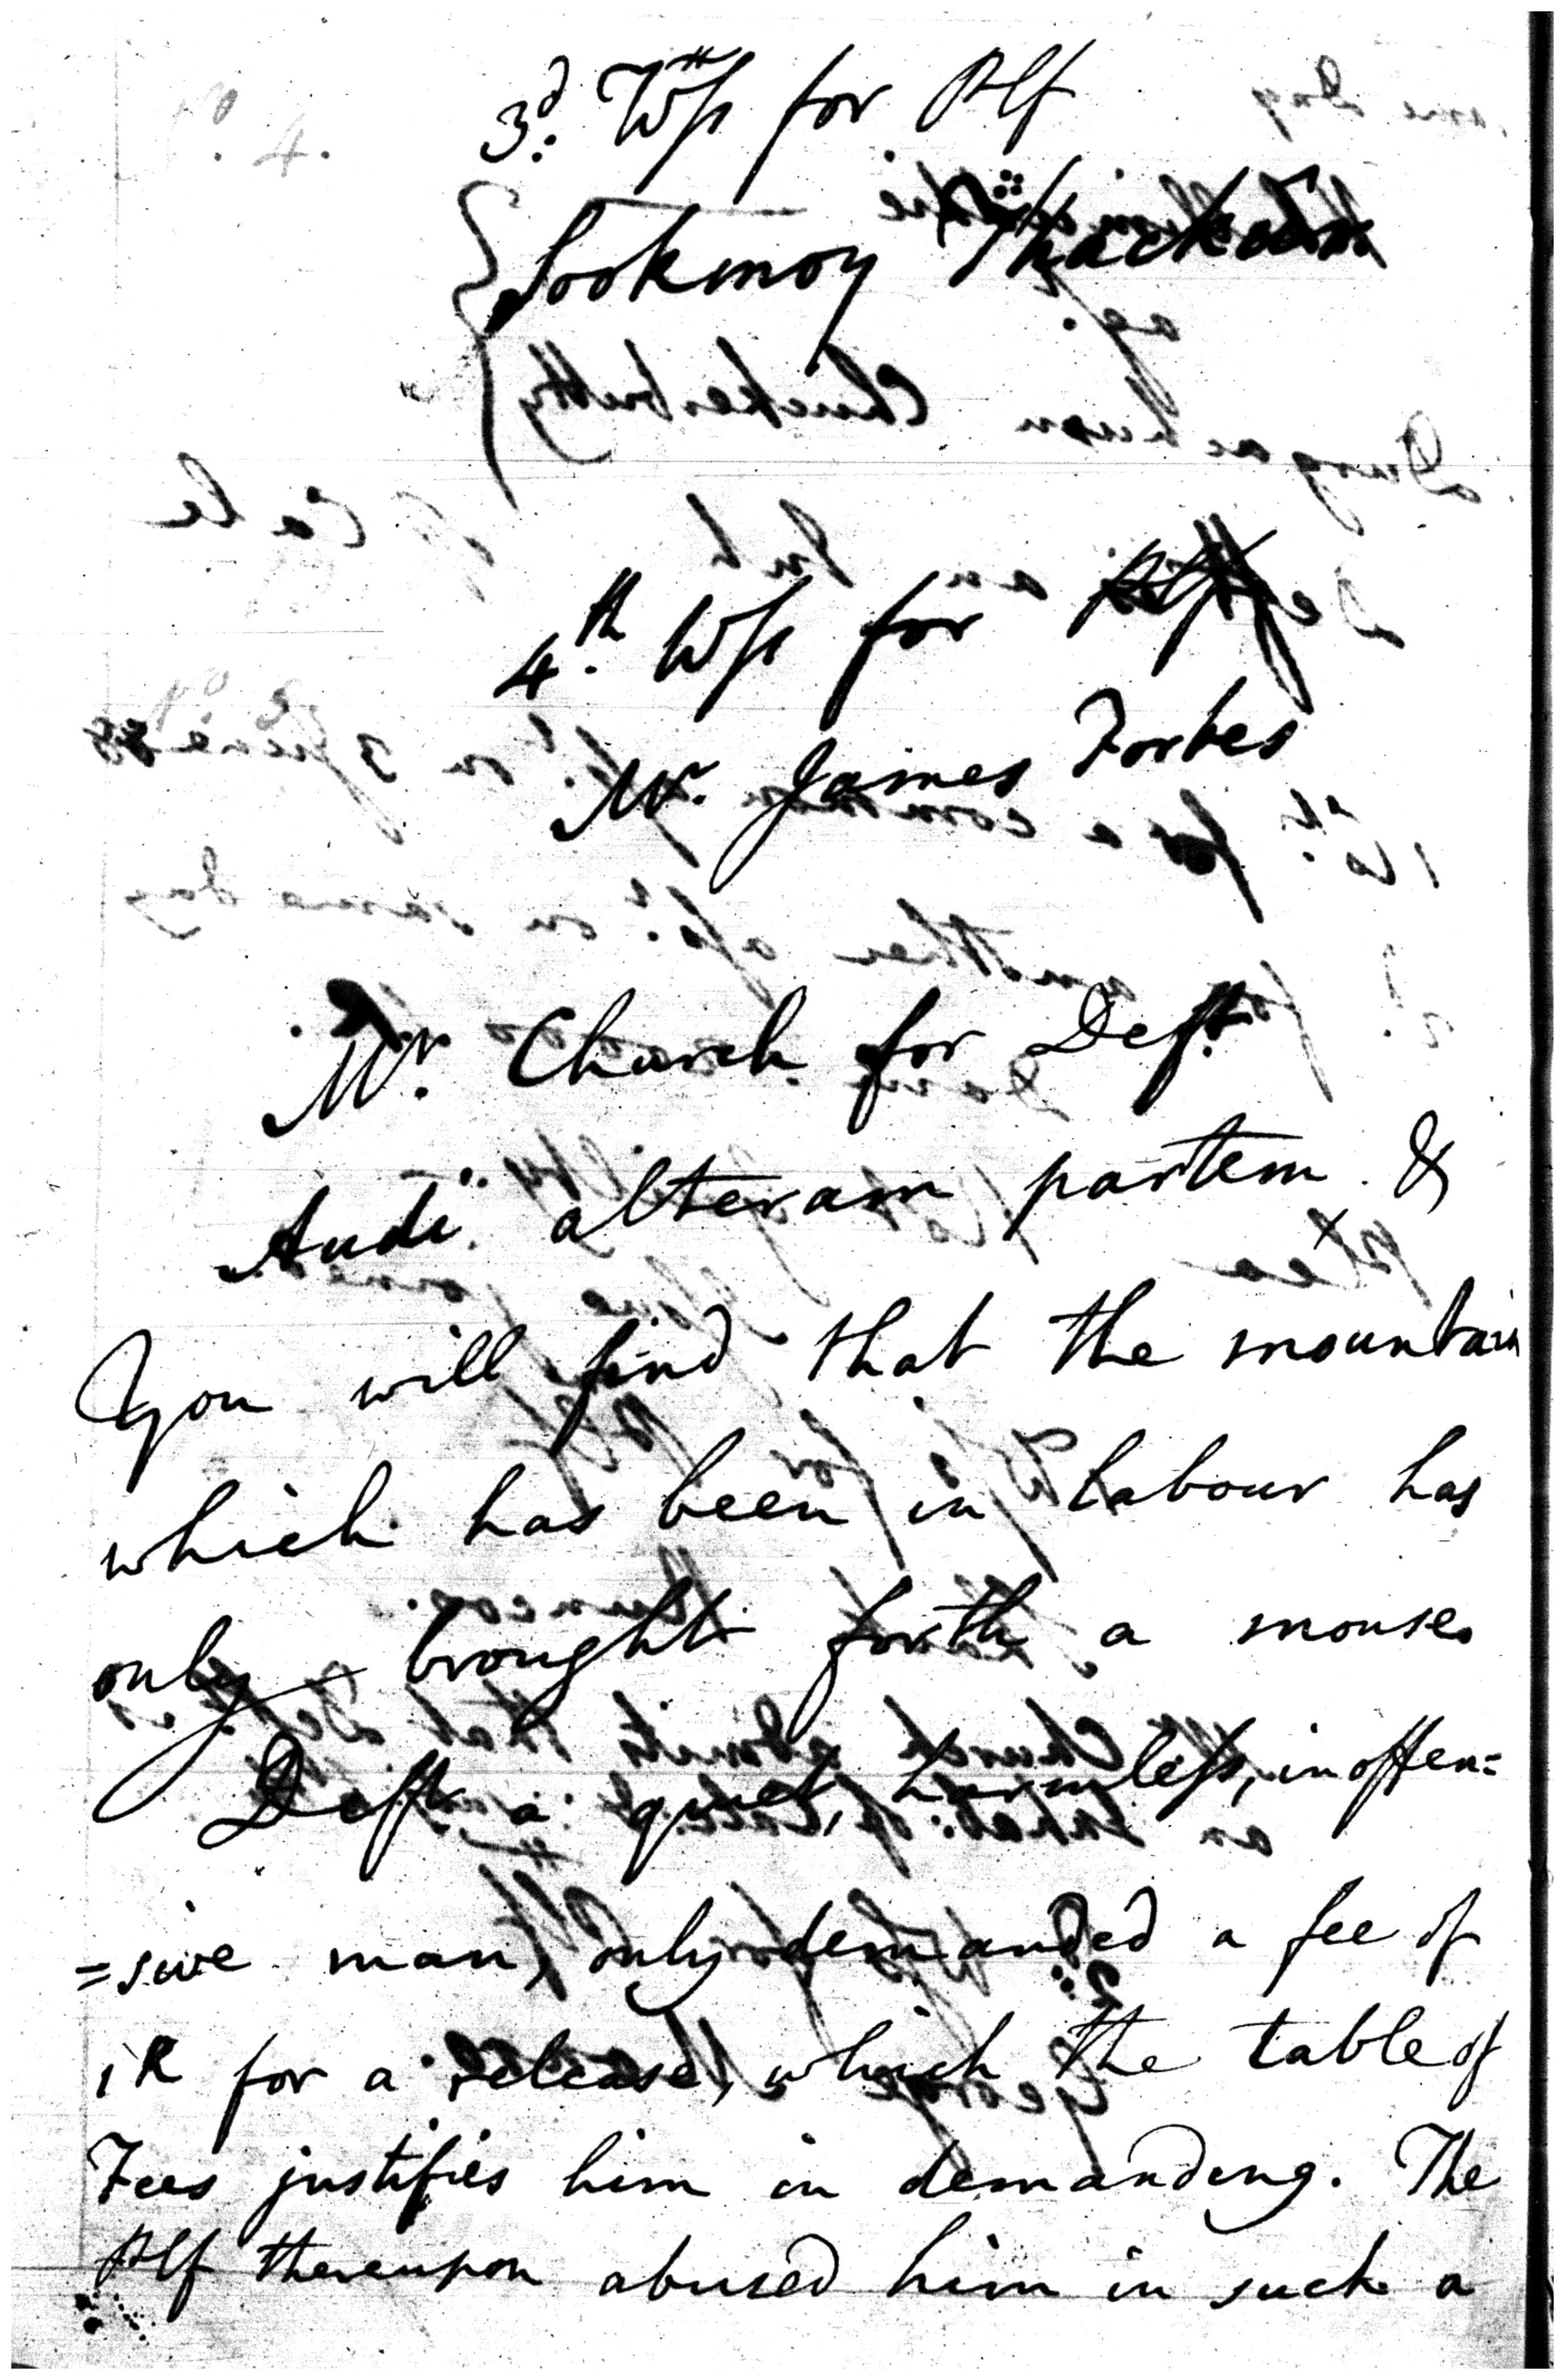 3d. Wss for Plf
Sookmoy Thackoor
4th. Wss for Plf
Mr. James Forbes
Mr. Church for Deft
Audi alteram partem &
You will find that the mountain
which has been in labour has
only brought forth a mouse
Deft a quiet, harmless, inoffen=
=sive man, only demanded a fee of
1R for a release, which the table of
Fees justifies him in demanding. The
Plf thereupon abused him in such a